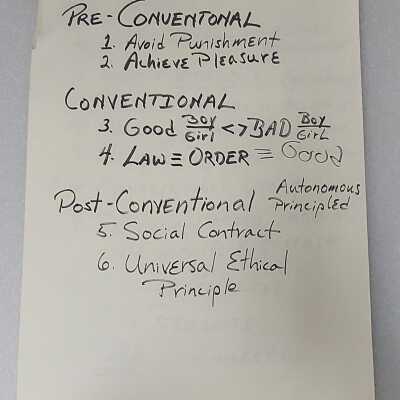 PRE-CONVENTONAL
1. Avoid Punishment
2. Achieve Pleasure
CONVENTIONAL
3. Good Boy/Girl <> BAD Boy/GirL
4. LAW ≡ ORDER ≡ Good
Post-Conventional Autonomous Principled
5. Social Contract
6. Universal Ethical
Principle